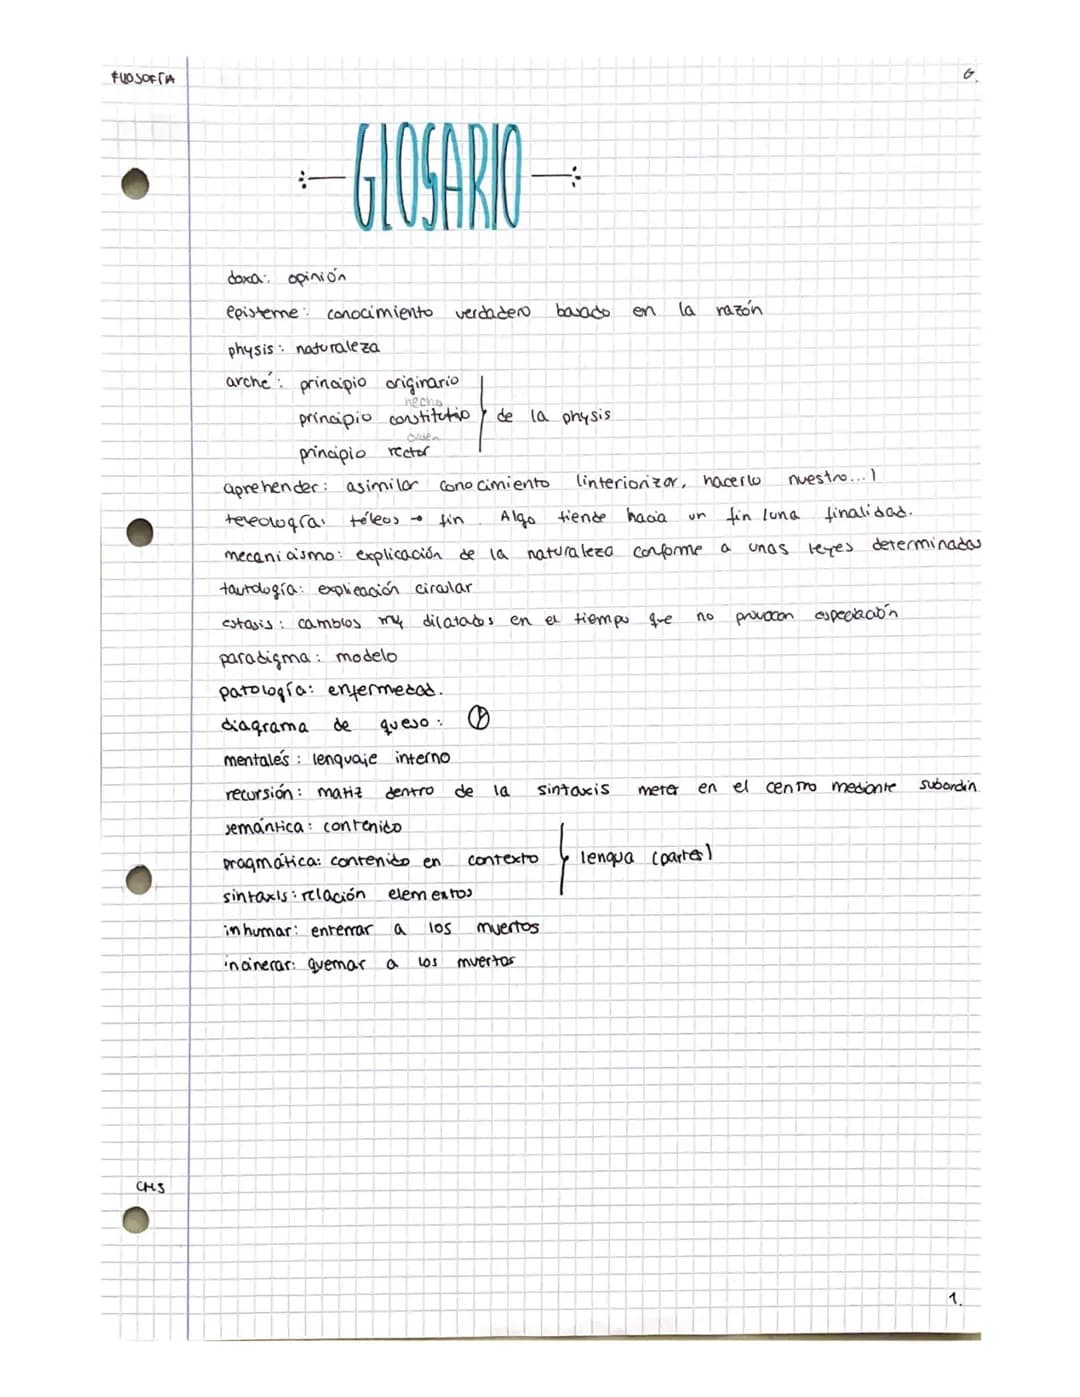 FILOSOFÍA
G.
GLOSARIO
doxa: opinión
episteme: conocimiento verdadero basado en la razón
physis: naturaleza
arché: principio originario
hecho
principio constitutio de la physis
orden
principio rector
aprehender: asimilar conocimiento (interiorizar, hacerlo nuestro...)
teleología: téleos → fin. Algo tiende hacia un fin / una finalidad.
mecanicismo: explicación de la naturaleza conforme a unas leyes determinadas
tautología: explicación circular
estasis: cambios my dilatados en el tiempo que no provocan especiación
paradigma: modelo
patología: enfermedad.
diagrama de queso:
mentalés: lenguaje interno
recursión: matiz dentro de la sintaxis meter en el centro mediante subordin
semántica: contenido
pragmática: contenido en contexto lengua (partes)
sintaxis: relación elementos
inhumar: enterrar a los muertos
incinerar: quemar a los muertos
CMS
1.